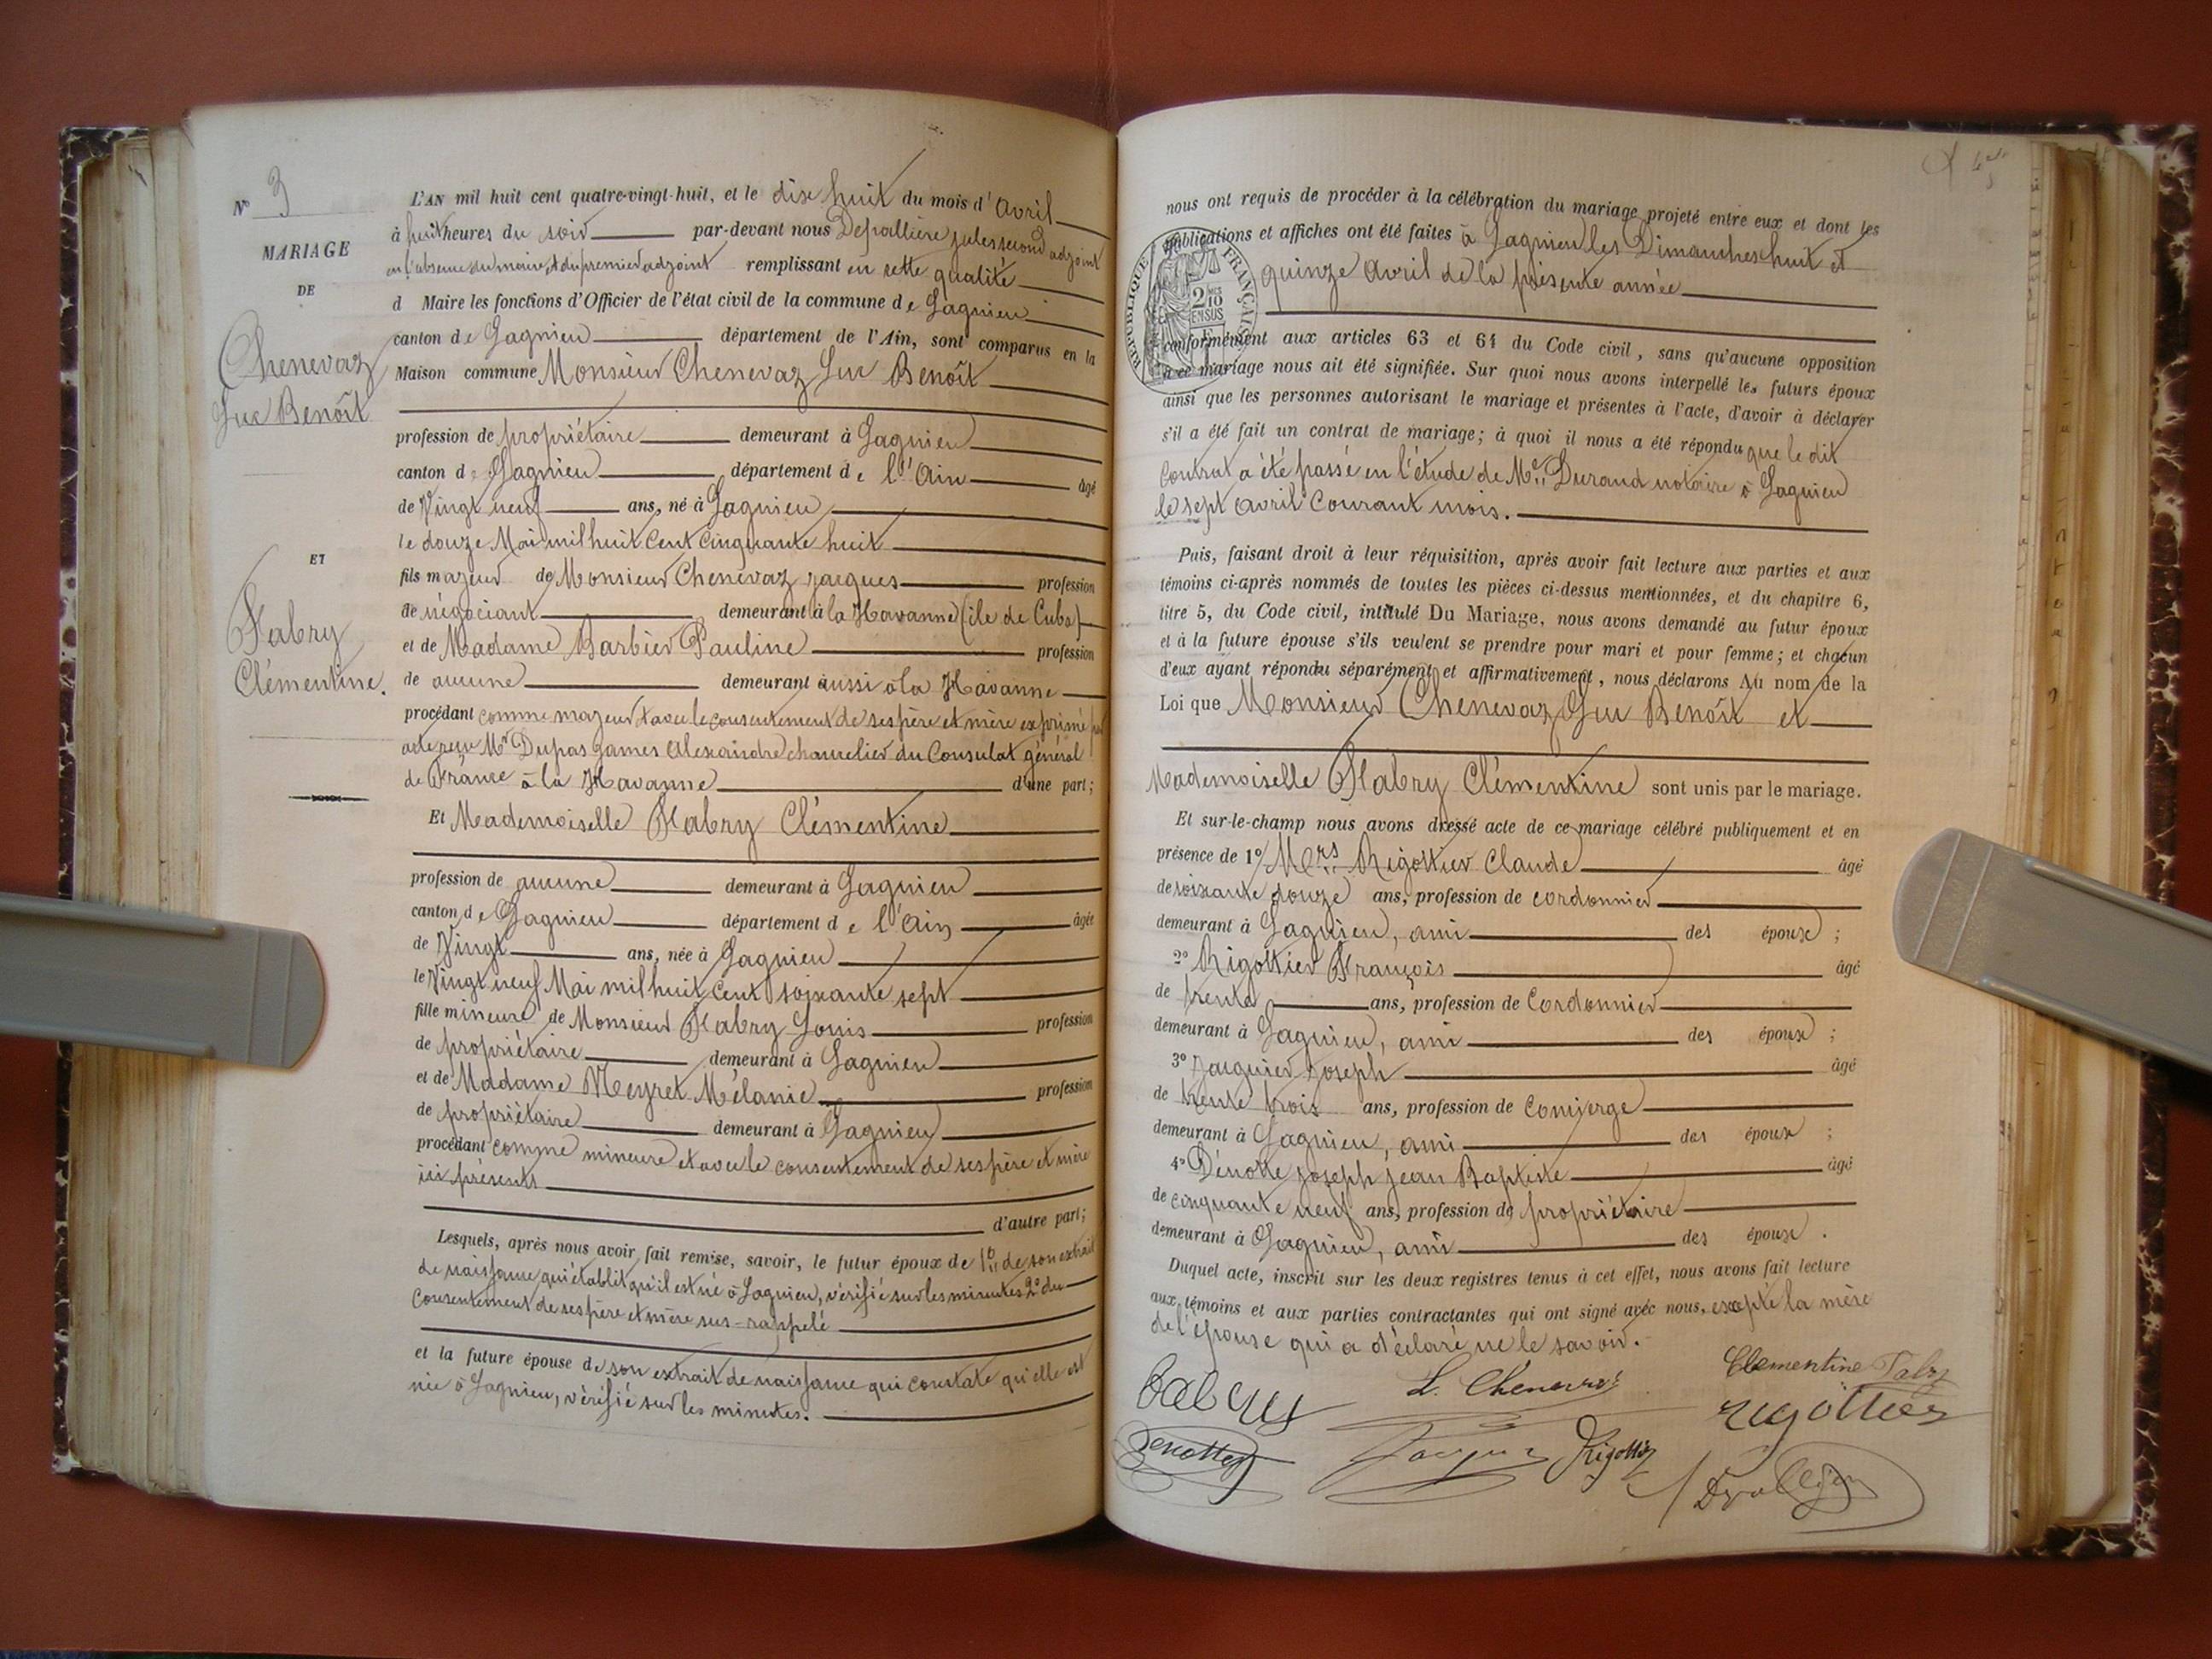 N° 3
MARIAGE
DE
Chenevaz
Luc Benoît
ET
Fabry
Clémentine.
L'AN mil huit cent quatre-vingt-huit, et le dix huit du mois d'Avril
à huit heures du soir par-devant nous Depallière jules second adjoint
en l'absence du maire et du premier adjoint remplissant en cette qualité
d Maire les fonctions d'Officier de l'état civil de la commune de Lagnieu
canton de Lagnieu département de l'Ain, sont comparus en la
Maison commune Monsieur Chenevaz Luc Benoît
profession de propriétaire demeurant à Lagnieu
canton de Lagnieu département de l'Ain âgé
de Vingt neuf ans, né à Lagnieu
le douze Mai mil huit Cent Cinquante huit
fils majeur de Monsieur Chenevaz jacques profession
de négociant demeurant à la Havanne (île de Cuba)
et de Madame Barbier Pauline profession
de aucune demeurant aussi à la Havanne
procédant comme majeur & avec le consentement de ses père et mère exprimé par
acte reçu Mr Dupas James Alexandre chancelier du Consulat général
de France à la Havanne d'une part;
Et Mademoiselle Fabry Clémentine
profession de aucune demeurant à Lagnieu
canton de Lagnieu département de l'Ain âgée
de Vingt ans, née à Lagnieu
le Vingt neuf Mai mil huit Cent soixante sept
fille mineure de Monsieur Fabry Louis profession
de propriétaire demeurant à Lagnieu
et de Madame Meyret Mélanie profession
de propriétaire demeurant à Lagnieu
procédant comme mineure et avec le consentement de ses père et mère
ici présents
d'autre part;
Lesquels, après nous avoir fait remise, savoir, le futur époux de 1° de son extrait
de naissance qui établit qu'il est né à Lagnieu, vérifié sur les minutes 2° du
Consentement de ses père et mère sus-rappelé
et la future épouse de son extrait de naissance qui constate qu'elle est
née à Lagnieu, vérifié sur les minutes.
nous ont requis de procéder à la célébration du mariage projeté entre eux et dont les
publications et affiches ont été faites à Lagnieu les Dimanches huit et
quinze Avril de la présente année
RÉPUBLIQUE FRANÇAISE
2/10
EN SUS
conformément aux articles 63 et 64 du Code civil, sans qu'aucune opposition
à ce mariage nous ait été signifiée. Sur quoi nous avons interpellé les futurs époux
ainsi que les personnes autorisant le mariage et présentes à l'acte, d'avoir à déclarer
s'il a été fait un contrat de mariage; à quoi il nous a été répondu que le dit
Contrat a été passé en l'étude de Me Durand notaire à Lagnieu
le sept Avril Courant mois.
Puis, faisant droit à leur réquisition, après avoir fait lecture aux parties et aux
témoins ci-après nommés de toutes les pièces ci-dessus mentionnées, et du chapitre 6,
titre 5, du Code civil, intitulé Du Mariage, nous avons demandé au futur époux
et à la future épouse s'ils veulent se prendre pour mari et pour femme; et chacun
d'eux ayant répondu séparément et affirmativement, nous déclarons Au nom de la
Loi que Monsieur Chenevaz Luc Benoît et
Mademoiselle Fabry Clémentine sont unis par le mariage.
Et sur-le-champ nous avons dressé acte de ce mariage célébré publiquement et en
présence de 1° Mrs Rigottier Claude âgé
de soixante douze ans, profession de cordonnier
demeurant à Lagnieu, ami des époux ;
2° Rigottier François âgé
de trente ans, profession de Cordonnier
demeurant à Lagnieu, ami des époux ;
3° Jacquier Joseph âgé
de trente trois ans, profession de Concierge
demeurant à Lagnieu, ami des époux ;
4° Dénotte Joseph Jean Baptiste âgé
de cinquante neuf ans, profession de propriétaire
demeurant à Lagnieu, ami des époux .
Duquel acte, inscrit sur les deux registres tenus à cet effet, nous avons fait lecture
aux témoins et aux parties contractantes qui ont signé avec nous, excepté la mère
de l'épouse qui a déclaré ne le savoir.
L. Chenevaz Clementine Fabry
rigottier
Denotte Rigottier